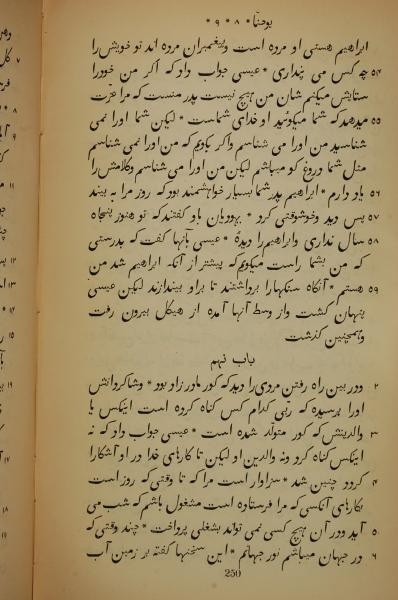 یوحنّا * ۸ * ۹ *
ابراهیم هستی او مرده است وپیغمبران مرده اند تو خویش را
۵۴ چه کس می پنداری * عیسی جواب داد که اگر من خودرا
ستایش میکنم شان من هیچ نیست پدر منست که مرا عزّت
۵۵ میدهد که شما میکوئید او خدای شماست * لیکن شما اورا نمی
شناسید من اورا می شناسم واکر بکویم که من اورا نمی شناسم
مثل شما دروغ کو میباشم لیکن من اورا می شناسم وکلامش را
۵۶ یاد دارم * ابراهیم پدر شما بسیار خواهشمند بود که روز مرا به بیند
۵۷ پس دید وخوشوقتی کرد * یهودیان باو کفتند که تو هنوز پنجاه
۵۸ سال نداری وابراهیم را دیدهٔ * عیسی بآنها کفت که بدرستی
که من بشما راست میکویم که پیشتر از آنکه ابراهیم شد من
۵۹ هستم * آنکاه سنکهارا برداشتند تا براو بیندازند لیکن عیسیٰ
پنهان کشت واز وسط آنها آمده از هیکل بیرون رفت
وهمچنین کذشت
باب نهم
۲ ودر بین راه رفتن مردی را دید که کور مادر زاد بود * وشاکردانش
اورا پرسیده که ربّی کدام کس کناه کرده است اینکس یا
۳ والدینش که کور متولّد شده است * عیسی جواب داد که نه
اینکس کناه کرد ونه والدین او لیکن تا کارهای خدا در او آشکارا
۴ کردد چنین شد * سزاوار است مرا که تا وقتی که روز است
بکارهای آنکسی که مرا فرستاوه است مشغول باشم که شب می
۵ آید ودر آن هیچ کسی نمی تواند بشغلی پرداخت * چند وقتی که
۶ در جهان میباشم نور جهانم * این سخنها کفته بر زمین آب
250